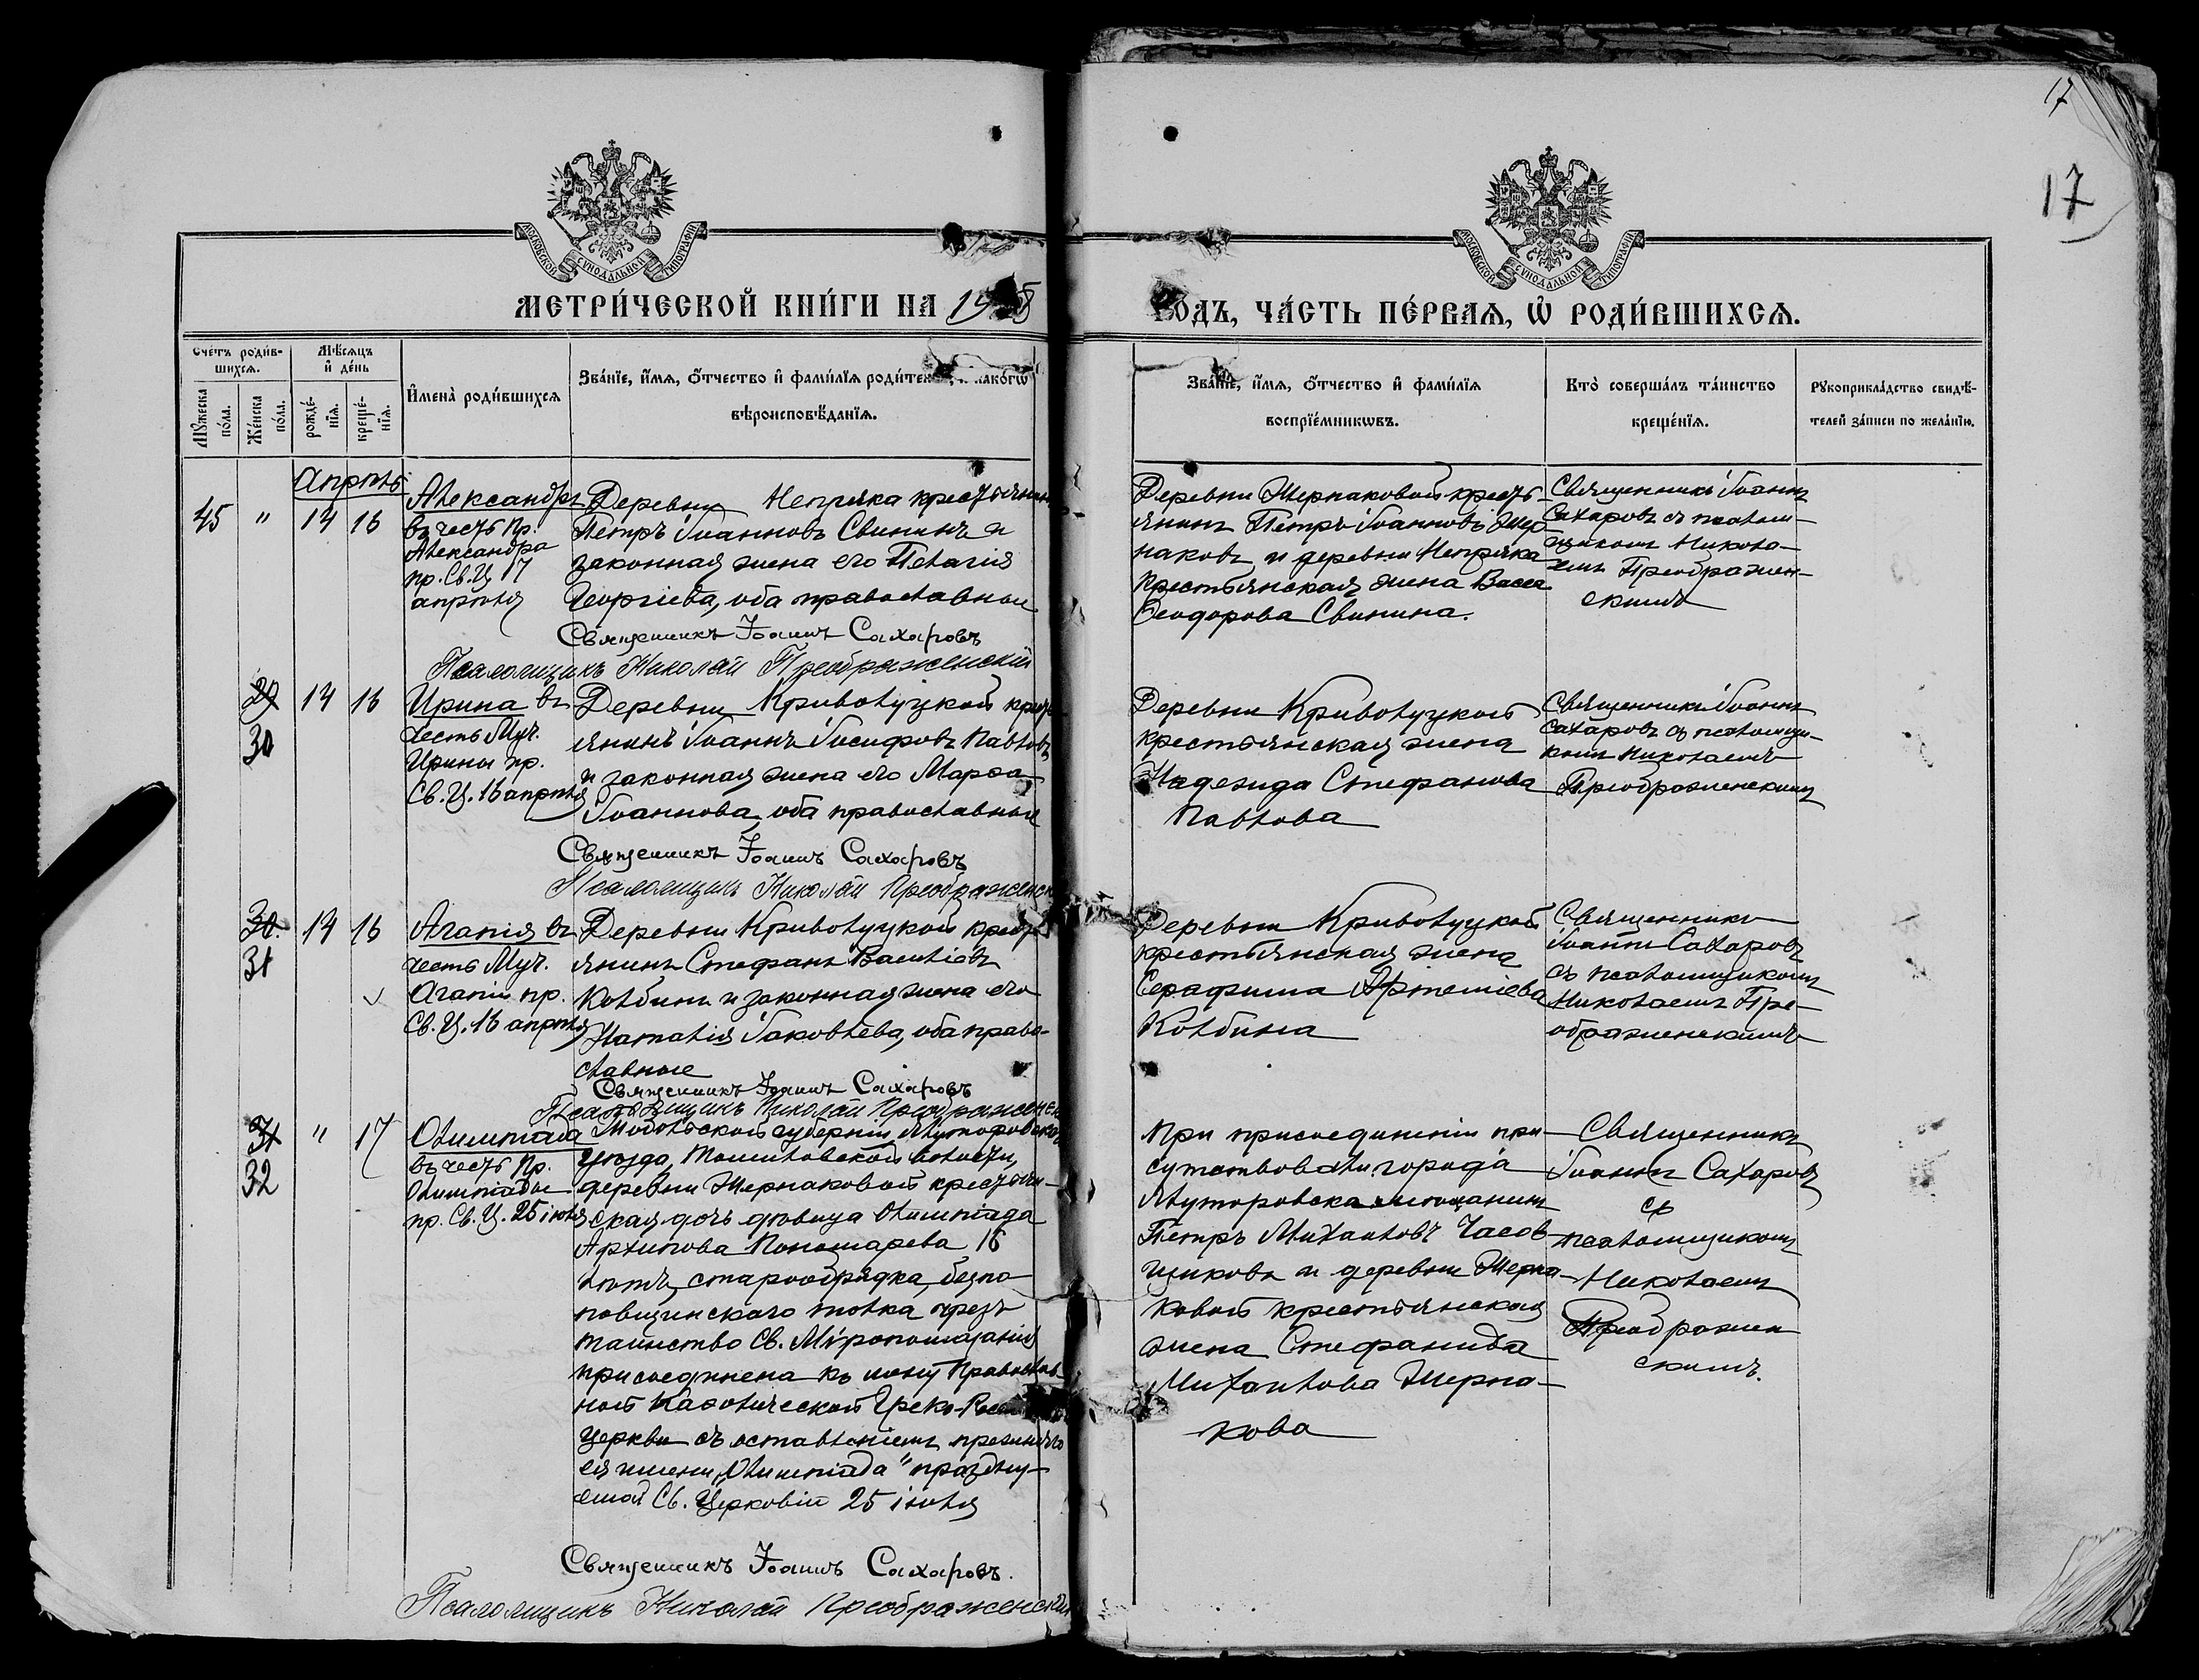 17
17
МОСКОВСКОЙ СѴНОДАЛЬНОЙ ТИПОГРАФІИ
МОСКОВСКОЙ СѴНОДАЛЬНОЙ ТИПОГРАФІИ
МЕТРИ́ЧЕСКОЙ КНИ́ГИ НА
ГОДЪ, ЧА́СТЬ ПЕ́РВАЯ, Ѡ҆ РОДИ́ВШИХСЯ.
Сче́тъ роди́в-
шихся.
Мѣ́сяцъ
и҆ де́нь
Му́жеска
по́ла.
Же́нска
по́ла.
рожде́-
нїя.
креще́-
нїя.
И҆мена̀ роди́вшихся
Зва́нїе, и҆́мя, ѻ҆́тчество и҆ фами́лїя роди́тел како́гѡ
вѣроисповѣ́данїя.
Зва́нїе, и҆́мя, ѻ҆́тчество и҆ фами́лїя
воспрїе́мникѡвъ.
Кто̀ соверша́лъ та́инство
креще́нїя.
Рꙋкоприкла́дство свидѣ́-
телей за́писи по жела́нїю.
Апрѣль
45 " 14 16
Александръ
въ честь Пр.
Александра
пр. Св. Ц 17
апрѣля
Деревни Непряха крестьянинъ
Петръ Іоанновъ Свининъ и
законная жена его Пелагія
Георгіева, оба православные
Священникъ Іоаннъ Сахаровъ
Псаломщикъ Николай Преображенскій
Деревни Жернаковой кресть-
янинъ Петръ Іоанновъ Жер-
наковъ и деревни Непряха
крестьянская жена Васса
Ѳеодорова Свинина.
Священникъ Іоаннъ
Сахаровъ съ псалом-
щикомъ Никола-
емъ Преображен-
скимъ
29 14 16
30
Ирина въ
честь Муч.
Ирины пр.
Св. Ц. 16 апрѣля
Деревни Криволуцкой крест
янинъ Іоаннъ Іосифовъ Павловъ
и законная жена его Марѳа
Іоаннова, оба православные
Священникъ Іоаннъ Сахаровъ
Псаломщикъ Николай Преображенск
Деревни Криволуцкой
крестьянская жена
Надежда Стефанова
Павлова
Священникъ Іоаннъ
Сахаровъ съ псаломщи-
комъ Николаемъ
Преображенскимъ
30. 14 16
31
Агапія въ
честь Муч.
Агапіи пр.
Св. Ц. 16 апрѣля
Деревни Криволуцкой крест
янинъ Стефанъ Василіевъ
Колбинъ и законная жена его
Наталія Іаковлева, оба право-
славные
Священникъ Іоаннъ Сахаровъ
Псаломщикъ Николай Преображенск
Деревни Криволуцкой
крестьянская жена
Серафима Артеміева
Колбина
Священникъ
Іоаннъ Сахаровъ
съ псаломщикомъ
Николаемъ Пре-
ображенскимъ
31 " 17
32
Олимпіада
въ честь Пр.
Олимпіады
пр. Св. Ц. 25 іюля
Тобольской губерніи Ялуторовскаго
уѣзда, Томиловской волости,
деревни Жернаковой крестьян-
ская дочь дѣвица Олимпіада
Архипова Пономарева 16
лѣтъ, старообрядка, безпо-
повщинскаго толка чрезъ
таинство Св. Мѵропомазанія
присоединена къ Православ-
ной Каѳолической Греко-Росс
Церкви съ оставленіемъ прежняго
ея имени „Олимпіада" праздну-
емой Св. Церковію 25 іюля
Священникъ Іоаннъ Сахаровъ.
Псаломщикъ Николай Преображенскій
При присоединеніи при-
сутствовали города
Ялуторовска мѣщанинъ
Петръ Михаиловъ Часов-
щиковъ и деревни Жерна-
ковой крестьянская
жена Стефанида
Михаилова Жерна-
кова
Священникъ
Іоаннъ Сахаровъ
съ
псаломщикомъ
Николаемъ
Преображен
скимъ.